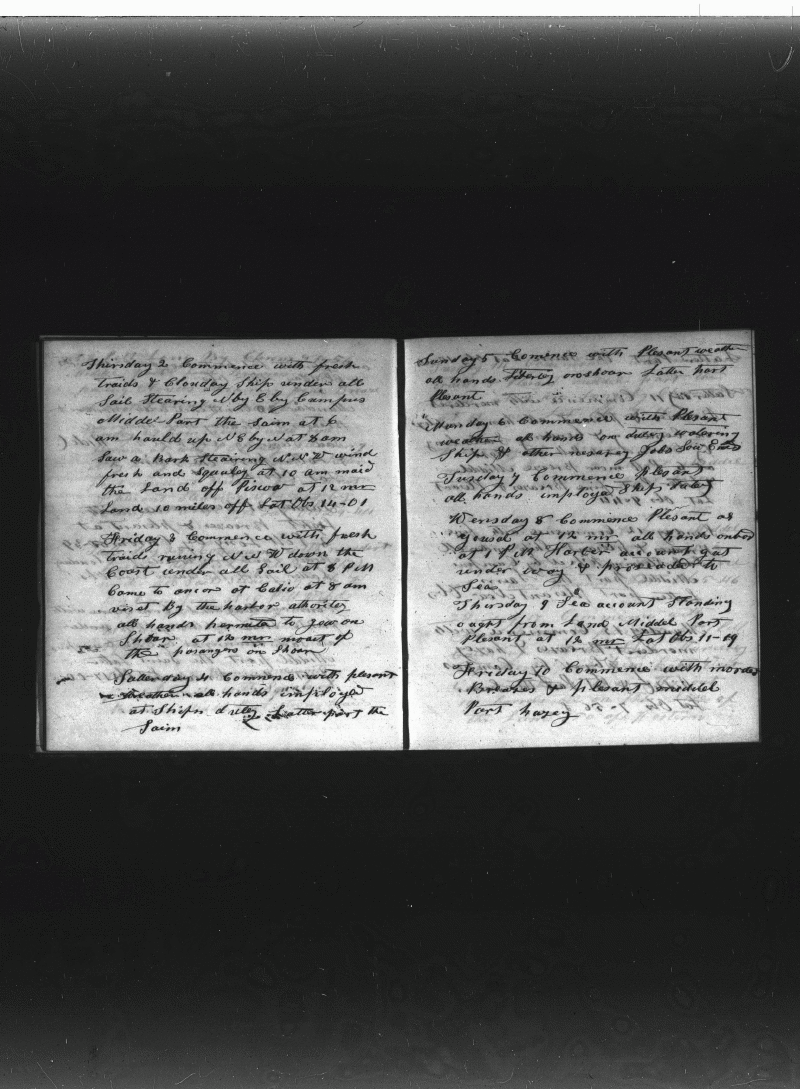 Thirsday 2 Commence with fresh
traids & Clouday Ship under all
Sail Stearing N by E by Compus
Middel Part the Saim at 6
am hauld up N E by N at 8 am
Saw a Bark Stairing N N W wind
fresh and Squaley at 10 am maid
the Land off Piscoa at 12 mr
Land 10 miles off Lat Obs 14-01
Friday 3 Commence with fresh
traids runing N N W down the
Coast under all Sail at 8 P M
Came to ancor at Calio at 8 am
visat By the harbor athoritey
all hands permited to Gow on
Shoar at 12 mr moast of
the pasangers on Shoar
Satterday 4 Commence with plesent
weather all hands imployd
at Ships dutey Latter part the
Saim
Sunday 5 Comence with Plesant weather
all hands on shoar Latter part
Plesant
Monday 6 Commence with Plesant
weather all hands on dutey watering
Ship & other nesaray Jobs Sow Ends
Tusday 7 Commence Plesant
all hands imployd Ship dutey
Wensday 8 Commence Plesant as
yousal at 12 mr all hands onbord
at 1 P M Harber account gut
under way & proseaded to
Sea
Thursday 9 Sea account Standing
ought from Land Middel Part
Plesant at 12 mr Lat Obs 11-09
Friday 10 Commence with mordes
Breases & plesant middel
Part hazey